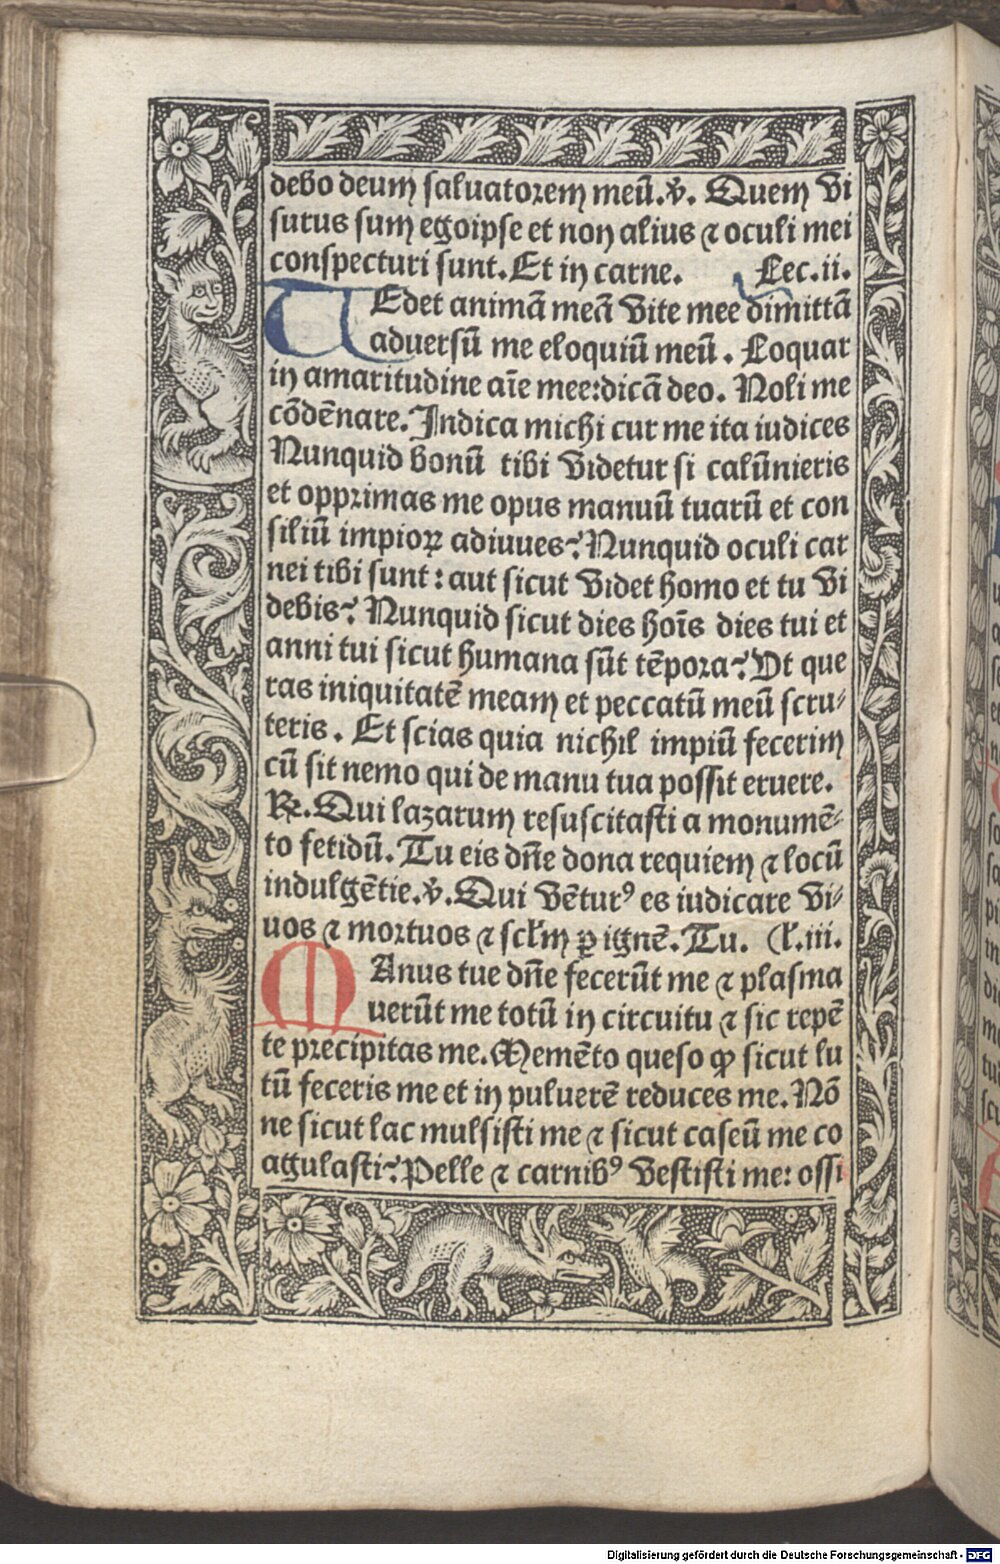 debo deum saluatorem meū. ꝟ. Quem vi
surus sum egoipse et non alius ⁊ oculi mei
conspecturi sunt. Et in carne. Lec. ii.
TEdet animā meā vite mee dimittā
aduersū me eloquiū meū. Loquar
in amaritudine aīe mee: dicā deo. Noli me
cōdēnare. Indica michi cur me ita iudices
Nunquid bonū tibi videtur si calūnieris
et opprimas me opus manuū tuarū et con
siliū impioꝝ adiuues? Nunquid oculi car
nei tibi sunt: aut sicut videt homo et tu vi
debis? Nunquid sicut dies hoīs dies tui et
anni tui sicut humana sūt tēpora? Vt que
ras iniquitatē meam et peccatū meū scru⸗
teris. Et scias quia nichil impiū fecerim
cū sit nemo qui de manu tua possit eruere.
℟. Qui lazarum resuscitasti a monumē⸗
to fetidū. Tu eis dn̄e dona requiem ⁊ locū
indulgētie. ꝟ. Qui vēturꝰ es iudicare vi⸗
uos ⁊ mortuos ⁊ scƚm ꝑ ignē. Tu. (ƚ. iii.
MAnus tue dn̄e fecerūt me ⁊ plasma
uerūt me totū in circuitu ⁊ sic repē
te precipitas me. Memēto queso ꝙ sicut lu
tū feceris me et in puluerē reduces me. Nō
ne sicut lac mulsisti me ⁊ sicut caseū me co
agulasti? Pelle ⁊ carnibꝰ vestisti me: ossi
Digitalisierung gefördert durch die Deutsche Forschungsgemeinschaft - DFG